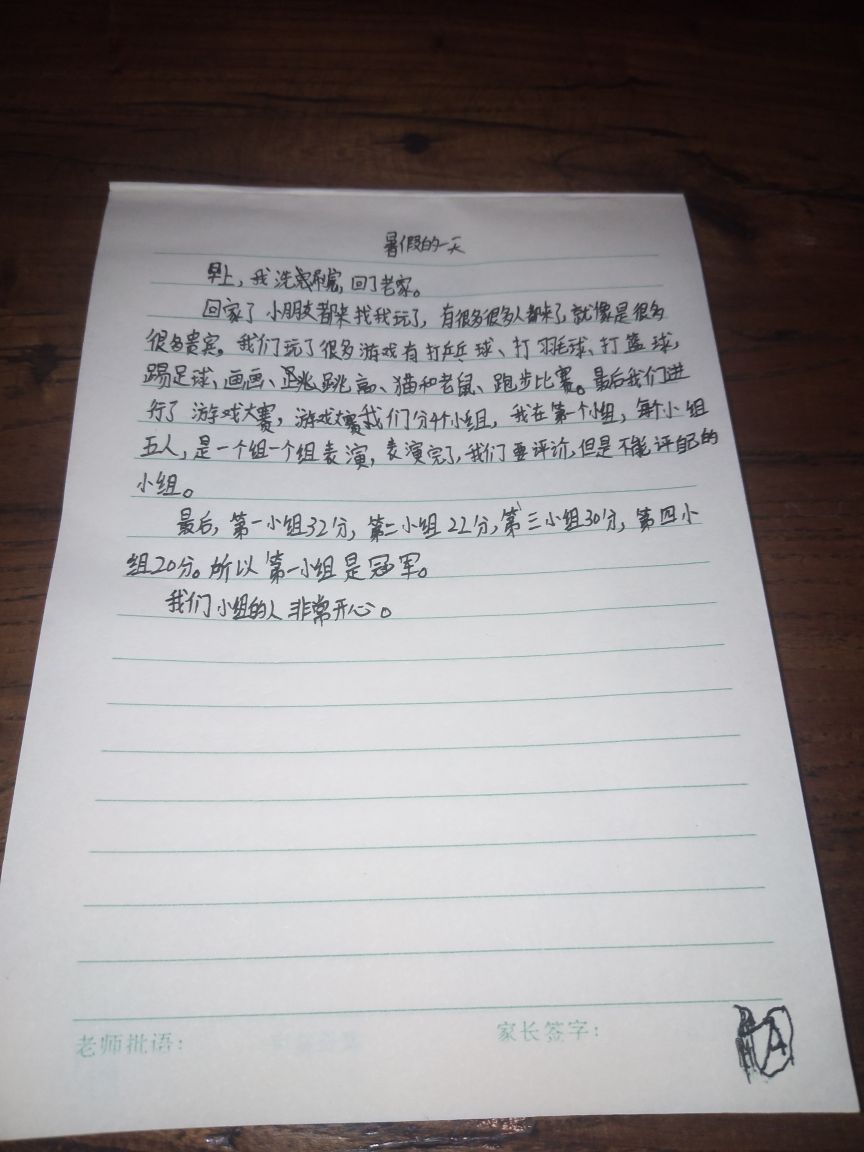 暑假的一天
早上，我洗完刷完，回了老家。
回家了小朋友都来找我玩了，有很多很多人都来了，就像是很多
很多贵宾。我们玩了很多游戏有打乒乓球、打羽毛球、打篮球，
踢足球、画画、跳高、猫和老鼠、跑步比赛。最后我们进
行了游戏大赛，游戏大赛我们分4个小组，我在第一个小组，每个小组
五人，是一个组一个组表演，表演完了，我们要评价，但是不能评自己的
小组。
最后，第一小组32分，第二小组22分，第三小组30分，第四小
组20分。所以第一小组是冠军。
我们小组的人非常开心。
老师批语：
家长签字：
A